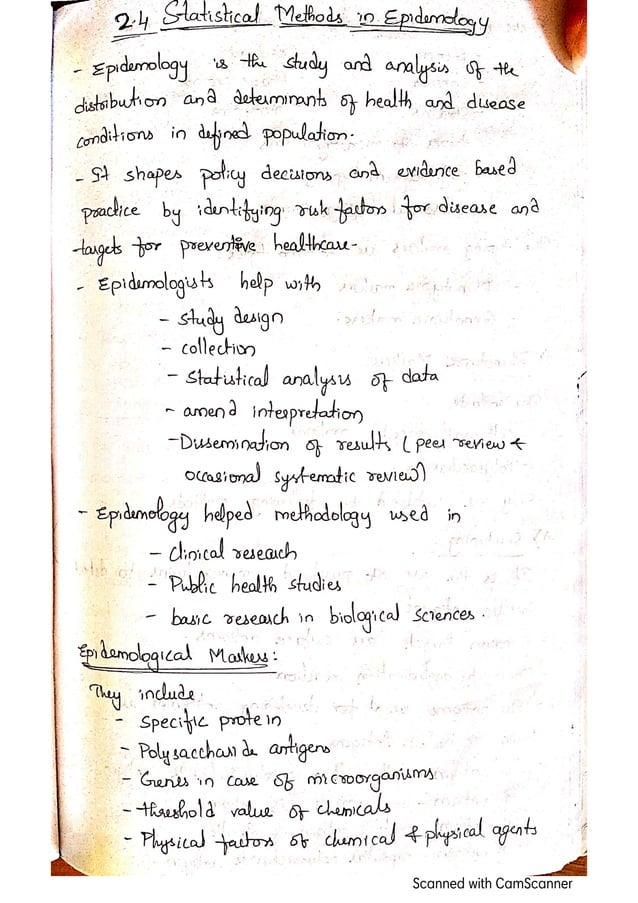 2.4 Statistical Methods in Epidemology
- Epidemology is the study and analysis of the
distribution and determinants of health and disease
conditions in defined population.
- It shapes policy decisions and evidence based
practice by identifying risk factors for disease and
targets for preventive healthcare.
- Epidemologists help with
- study design
- collection
- Statistical analysis of data
- amend interpretation
- Dissemination of results (peer review &
occasional systematic review)
- Epidemology helped methodology used in
- Clinical research
- Public health studies
- basic research in biological sciences.
Epidemological Markers:
They include
- Specific protein
- Polysaccharide antigens
- Genes in case of microorganisms
- threshold value of chemicals
- Physical factors of chemical & physical agents
Scanned with CamScanner